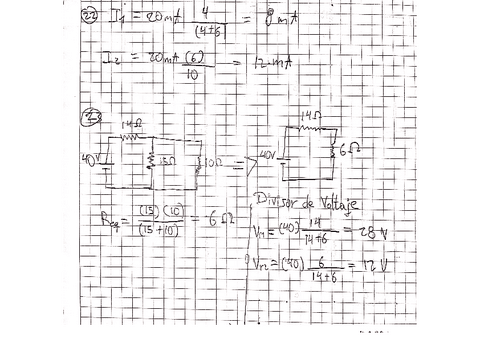 22 I₁ = 20mA 4/(4+6) = 8mA
I₂ = 20mA (6)/10 = 12mA
23
14Ω
40V
15Ω
10Ω
=>
14Ω
40V
6Ω
Req = (15)(10)/(15+10) = 6Ω
Divisor de Voltaje
Vr₁ = (40) 14/14+6 = 28 V
Vr₂ = (40) 6/14+6 = 12 V